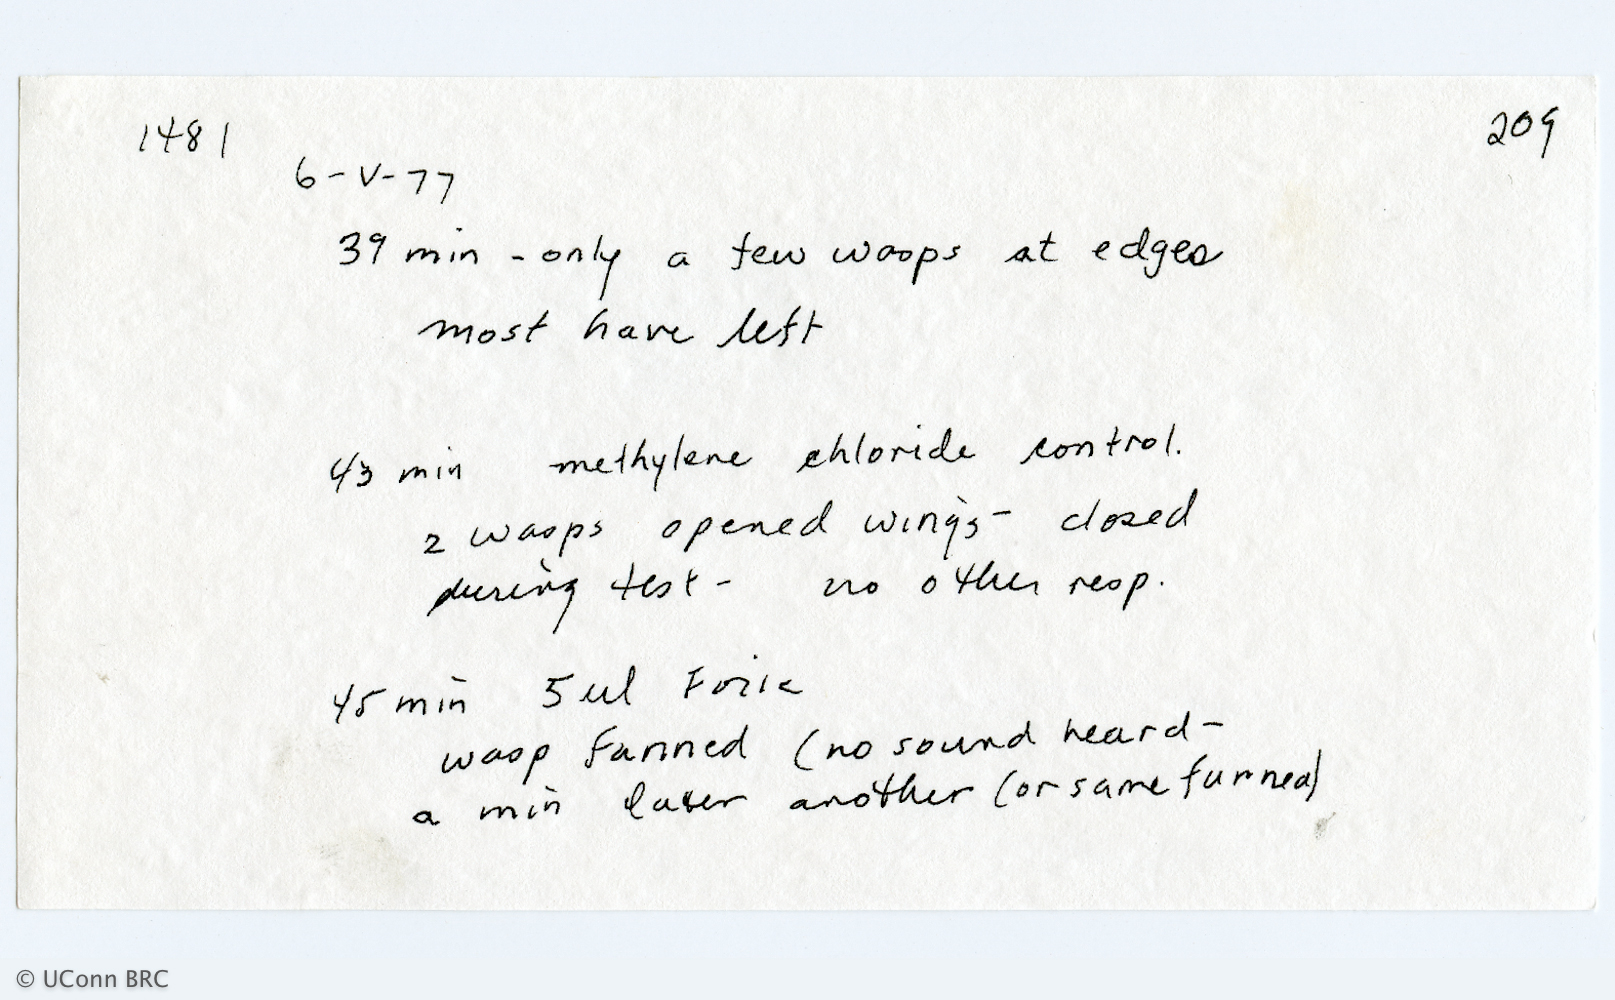 1481
209
6-V-77
39 min - only a few wasps at edges
most have left
43 min methylene chloride control.
2 wasps opened wings - closed
during test - no other resp.
45 min 5 ul
wasp fanned (no sound heard -
a min later another (or same fanned)
© UConn BRC